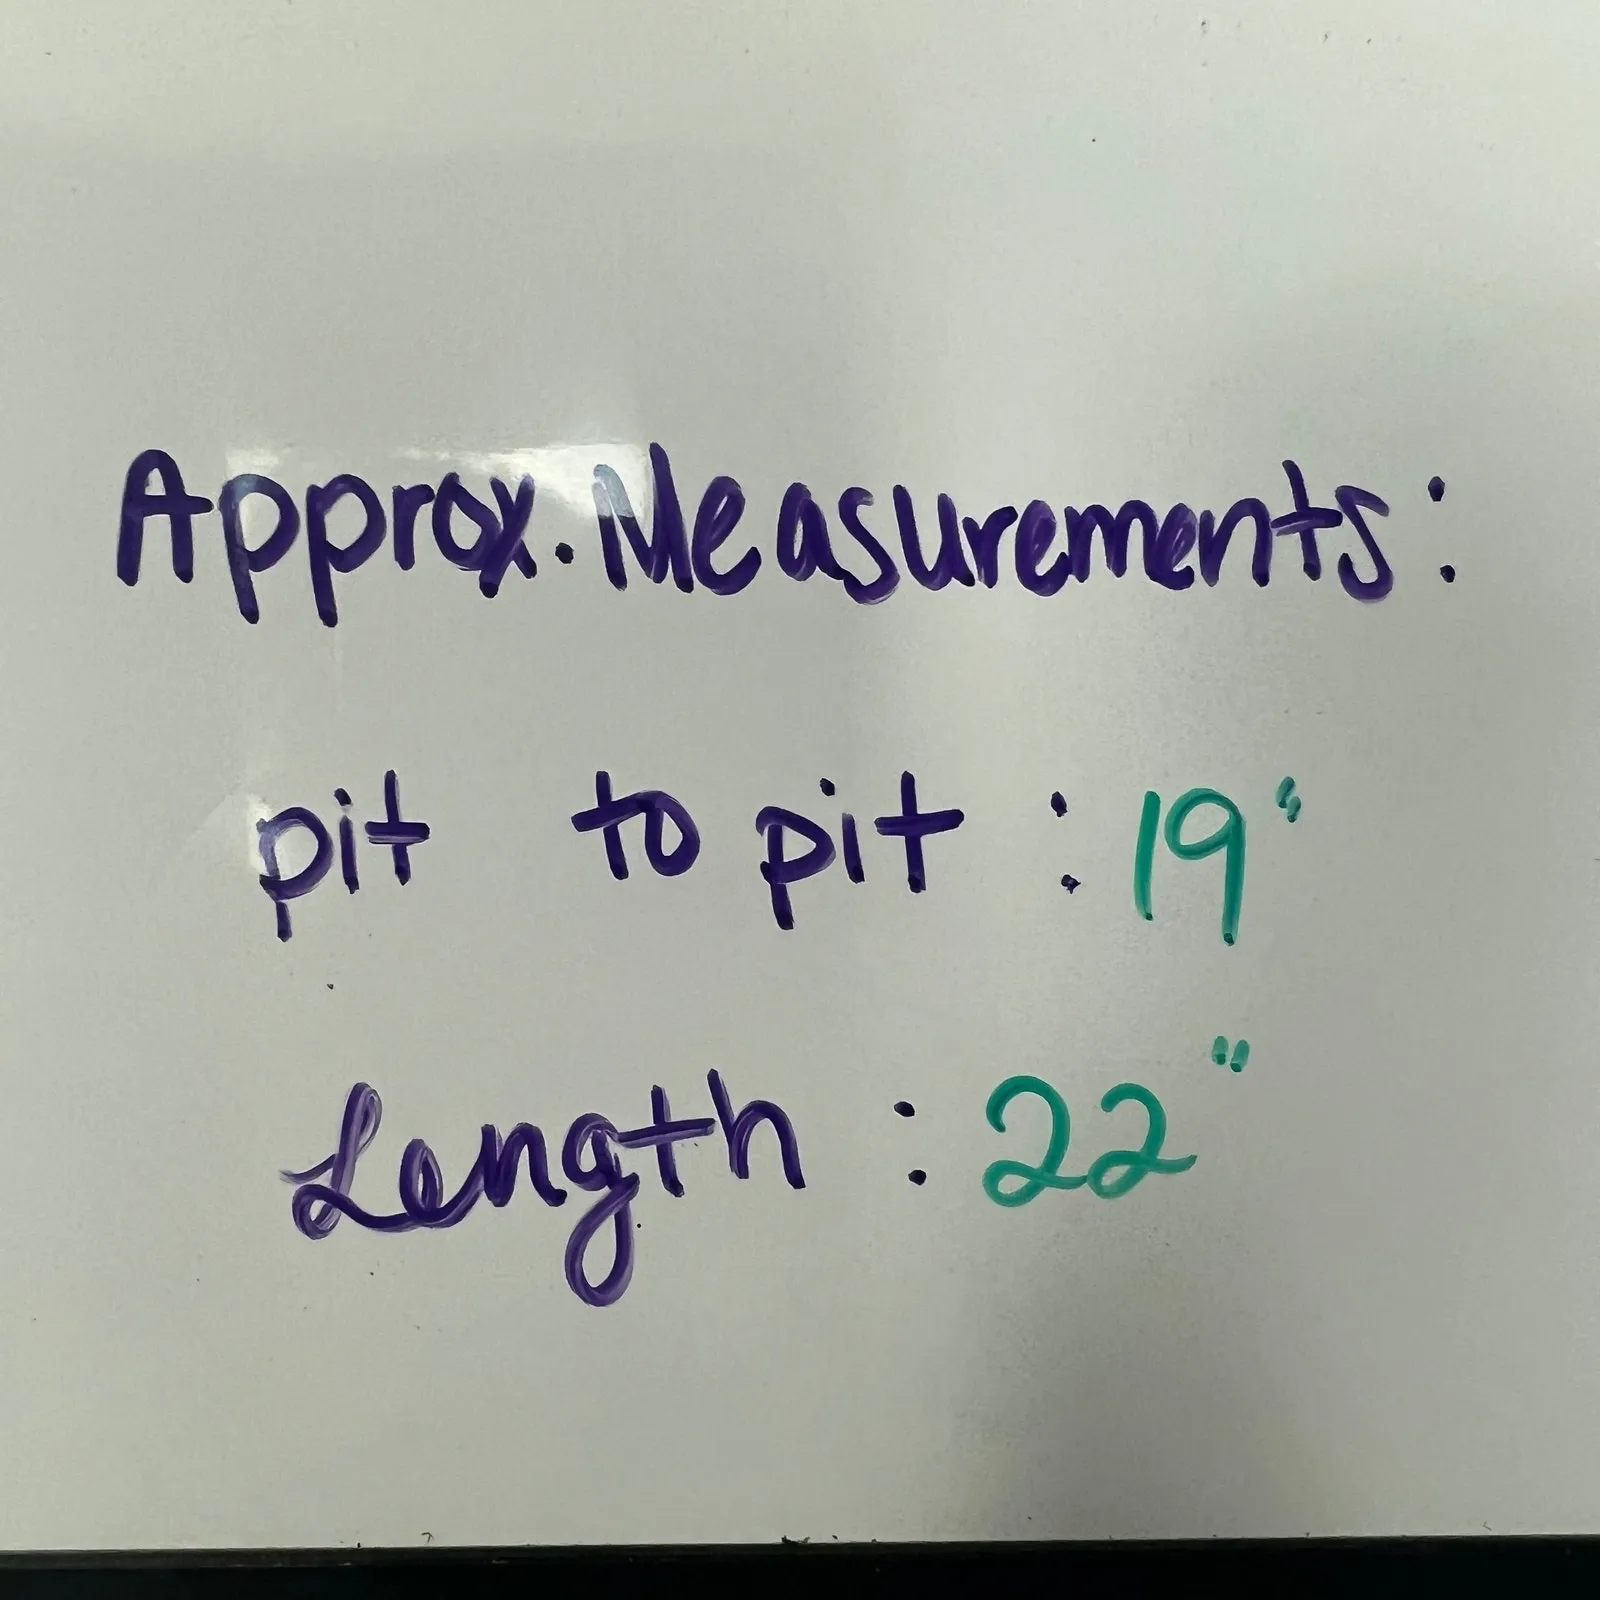 Approx. Measurements:
pit to pit : 19"
Length : 22"